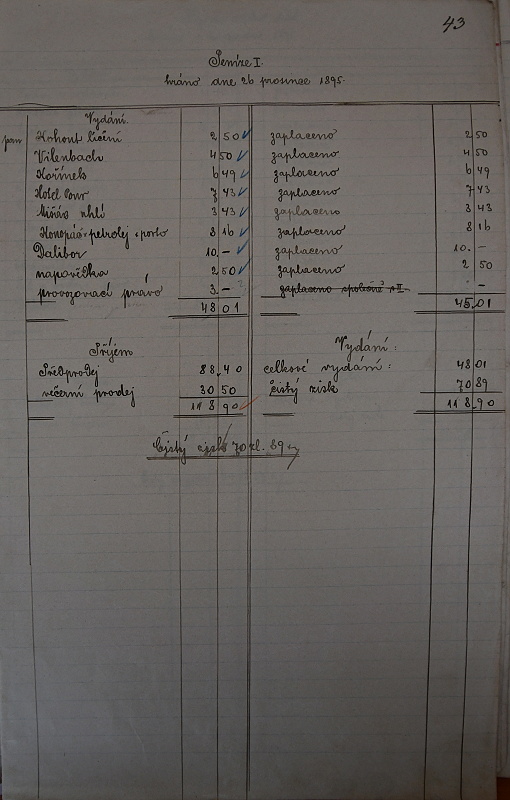 43
I.
hráno dne 26 prosince 1895.
Vydání.
pan Kohout líčení 2 50 zaplaceno 2 50
Vilenbach 4 50 zaplaceno 4 50
Kořínek 6 49 zaplaceno 6 49
Hotel 7 43 zaplaceno 7 43
uhlí 3 43 zaplaceno 3 43
petrolej a porto 8 16 zaplaceno 8 16
Dalibor 10. – zaplaceno 10. –
napověďka 2 50 zaplaceno 2 50
provozovací právo 3. – zaplaceno společně s II. . –
48 01 45.01
Příjem Vydání:
Předprodej 88.40 celkové vydání: 48 01
večerní prodej 30 50 čistý zisk 70 89
118 90 118.90
Čistý zisk 70 zl. 89